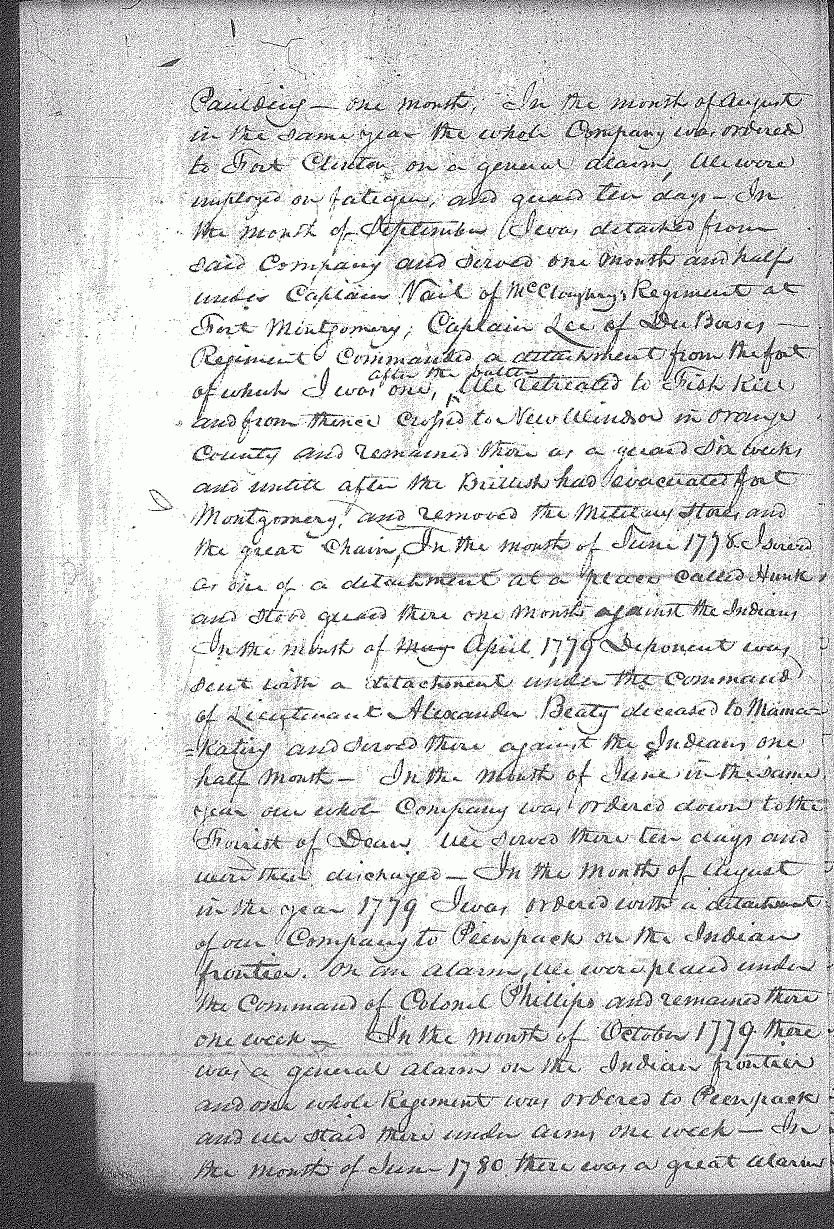 Paulding — one month, In the month of August
in the same year the whole Company was ordered
to Fort Clinton on a general alarm, We were
imployed on fatigue, and guard ten days — In
the month of September I was detached from
said Company and served one month and half
under Captain Vail of McCloughrys Regiment at
Fort Montgomery; Captain Lee of DuBoises —
Regiment Commanded a detachment from the fort
after the battle
of which I was one, We retreated to Fish Kill
and from thence crossed to New Windsor in Orange
County and remained there as a guard six weeks
and untill after the Brittish had evacuated fort
Montgomery, and removed the Military Stores and
the great Chain, In the month of June 1778 I served
as one of a detachment at a place called Hunk
and stood guard there one month against the Indians
In the month of may April 1779 Deponent was
sent with a detachment under the command
of Lieutenant Alexander Beaty deceased to Mama=
=kating and served there against the Indians one
half month — In the month of June in the same
year our whole Company was ordered down to the
Forrist of Dean. We served there ten days and
were then discharged — In the month of August
in the year 1779 I was ordered with a detachment
of our Company to Peenpack on the Indian
frontier. on an alarm, We were placed under
the Command of Colonel Phillips and remained there
one week — In the month of October 1779 there
was a general alarm on the Indian frontier
and our whole Regiment was ordered to Peenpack
and we staid there under arms one week — In
the month of June 1780 there was a great alarm